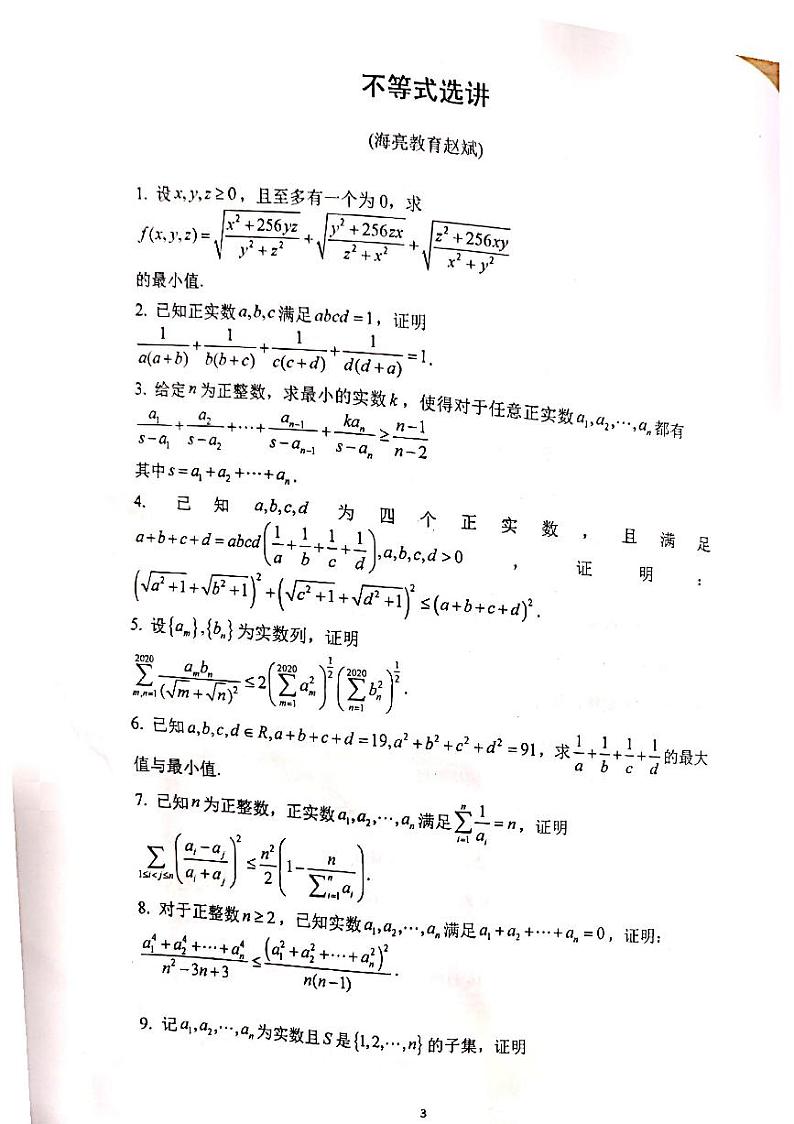 不等式选讲
(海亮教育赵斌)
1. 设 x,y,z≥0，且至多有一个为 0，求
f(x,y,z)=√((x²+256yz)/(y²+z²))+√((y²+256zx)/(z²+x²))+√((z²+256xy)/(x²+y²))
的最小值.
2. 已知正实数 a,b,c 满足 abcd=1，证明
1/(a(a+b))+1/(b(b+c))+1/(c(c+d))+1/(d(d+a))=1.
3. 给定 n 为正整数，求最小的实数 k，使得对于任意正实数 a₁,a₂,⋯,aₙ 都有
a₁/(s-a₁)+a₂/(s-a₂)+⋯+aₙ₋₁/(s-aₙ₋₁)+kaₙ/(s-aₙ)≥(n-1)/(n-2)
其中 s=a₁+a₂+⋯+aₙ.
4. 已知 a,b,c,d 为四个正实数，且满足
a+b+c+d=abcd(1/a+1/b+1/c+1/d),a,b,c,d>0，证明：
(√(a²+1)+√(b²+1))²+(√(c²+1)+√(d²+1))²≤(a+b+c+d)².
5. 设{aₘ},{bₙ}为实数列，证明
∑_{m,n=1}^{2020} aₘbₙ/(√m+√n)²≤2(∑_{m=1}^{2020} aₘ²)^{1/2}(∑_{n=1}^{2020} bₙ²)^{1/2}.
6. 已知 a,b,c,d∈R,a+b+c+d=19,a²+b²+c²+d²=91，求 1/a+1/b+1/c+1/d 的最大
值与最小值.
7. 已知 n 为正整数，正实数 a₁,a₂,⋯,aₙ 满足 ∑_{i=1}^{n} 1/aᵢ=n，证明
∑_{1≤i<j≤n} ((aᵢ-aⱼ)/(aᵢ+aⱼ))²≤n²/2(1-n/(∑_{i=1}^{n} aᵢ)).
8. 对于正整数 n≥2，已知实数 a₁,a₂,⋯,aₙ 满足 a₁+a₂+⋯+aₙ=0，证明:
(a₁⁴+a₂⁴+⋯+aₙ⁴)/(n²-3n+3)≤(a₁²+a₂²+⋯+aₙ²)²/(n(n-1)).
9. 记 a₁,a₂,⋯,aₙ 为实数且 S 是{1,2,⋯,n}的子集，证明
3